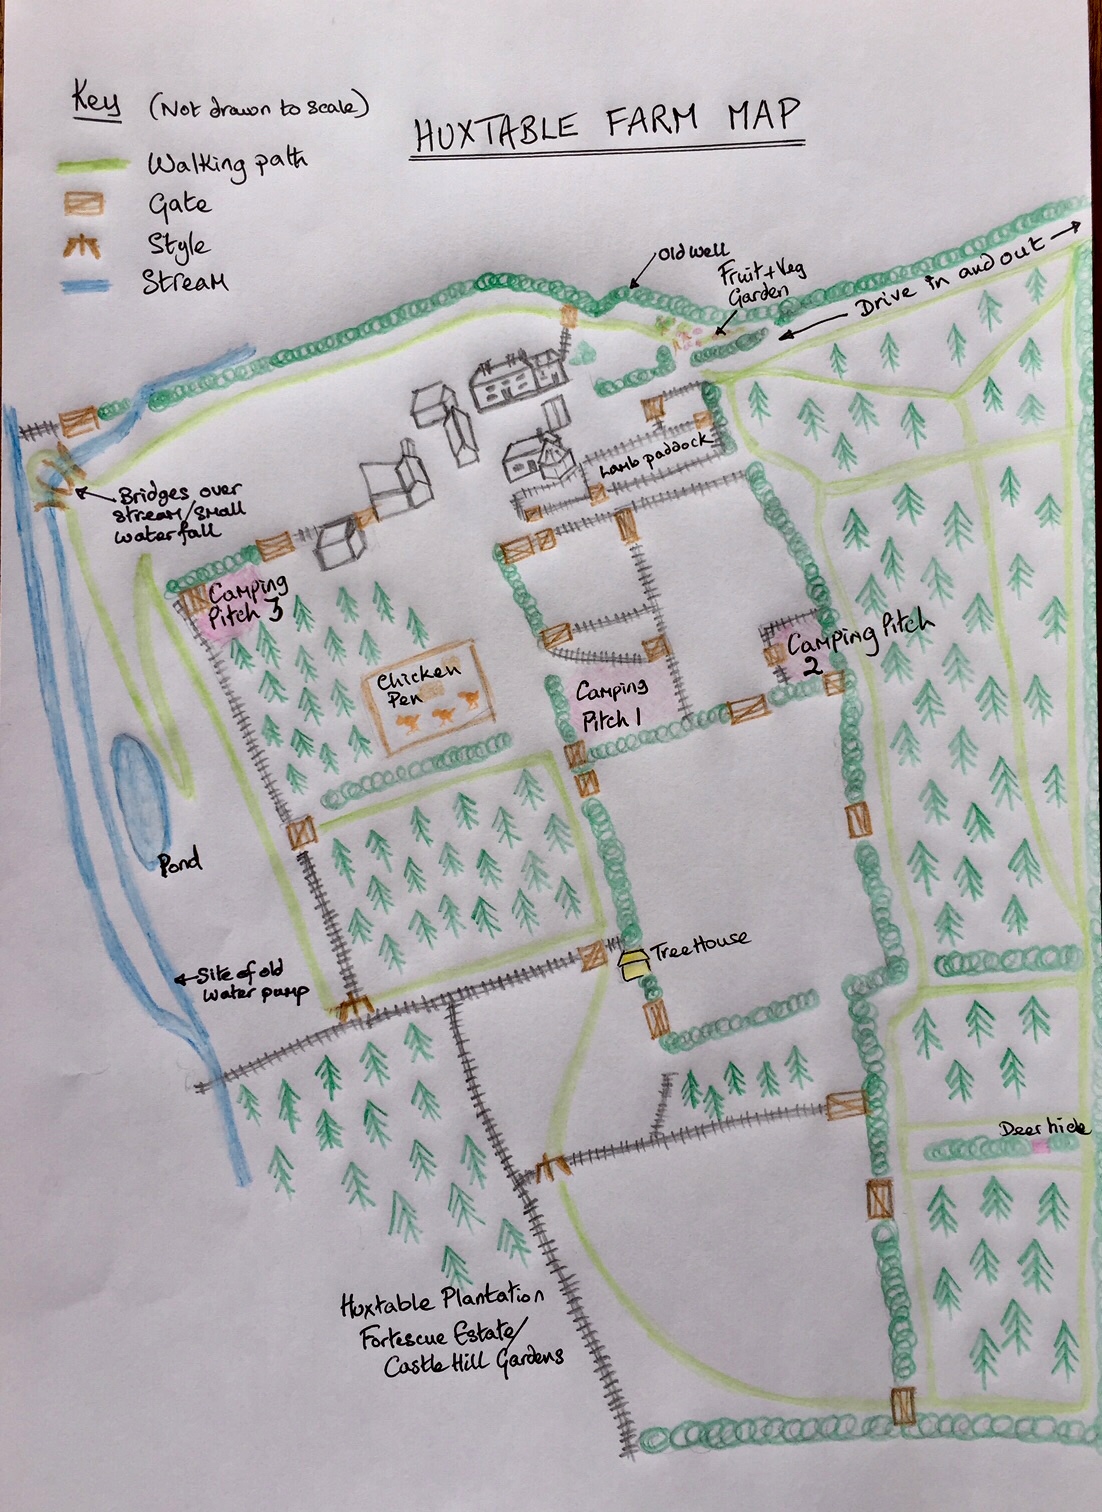 Key (Not drawn to scale)
HUXTABLE FARM MAP
Walking path
Gate
Style
Stream
Old well
Fruit + Veg
Garden
Drive in and out
Lamb paddock
Bridges over
stream/small
waterfall
Camping
Pitch 3
Camping Pitch
2
Chicken
Pen
Camping
Pitch 1
Pond
Tree House
Site of old
water pump
Deer hide
Huxtable Plantation
Fortescue Estate/
Castle Hill Gardens